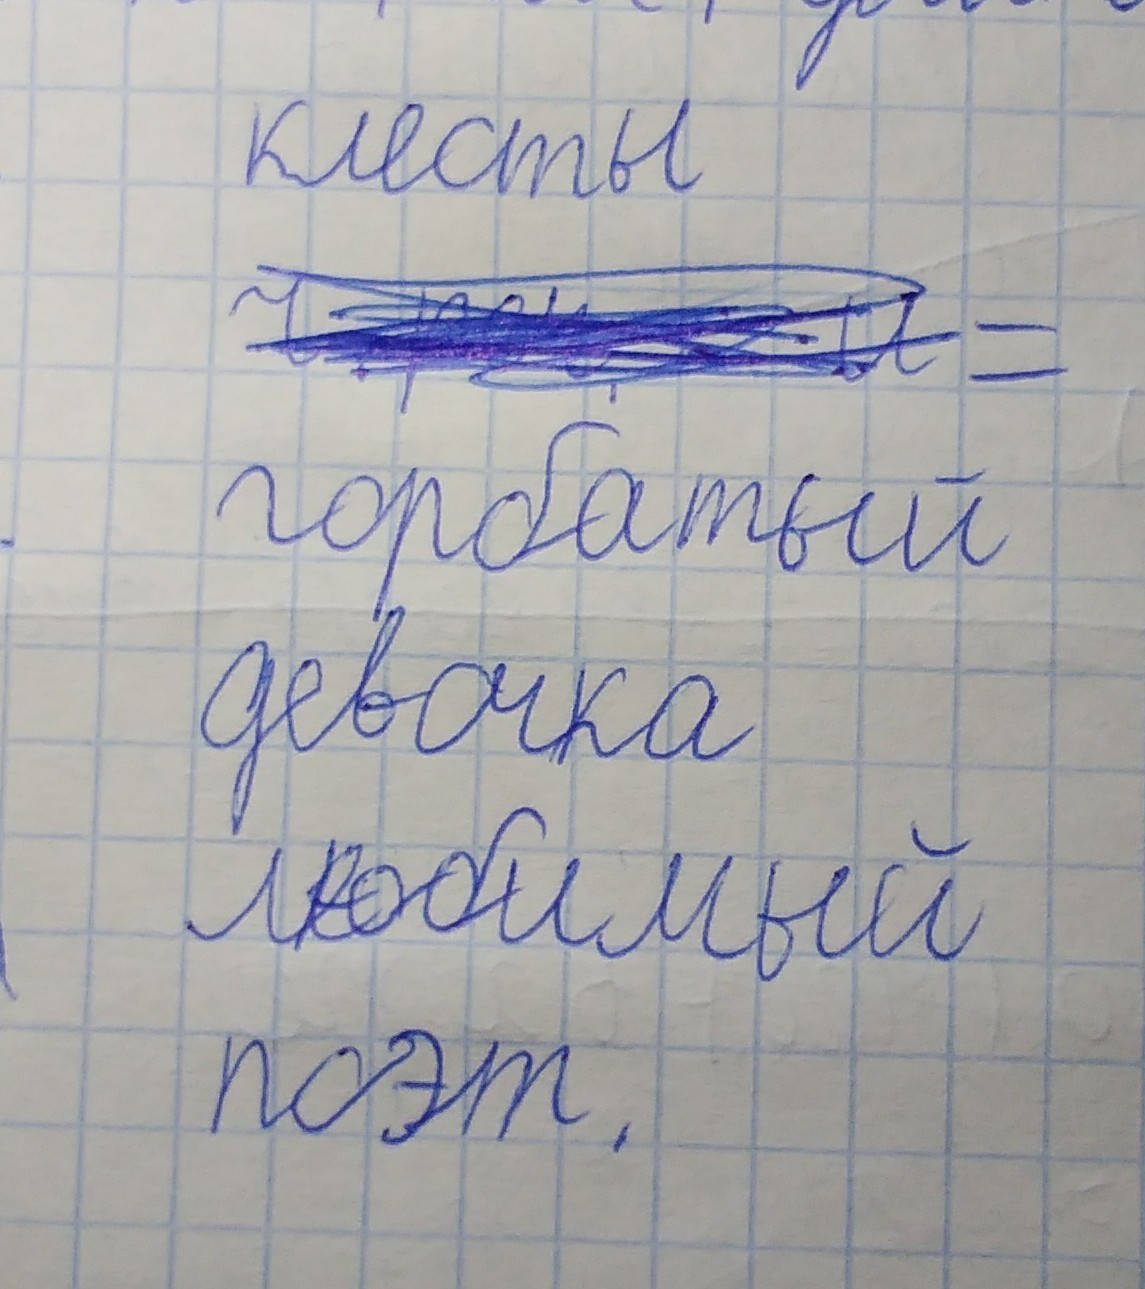 клесты
горбатый
девочка
любимый
поэт.